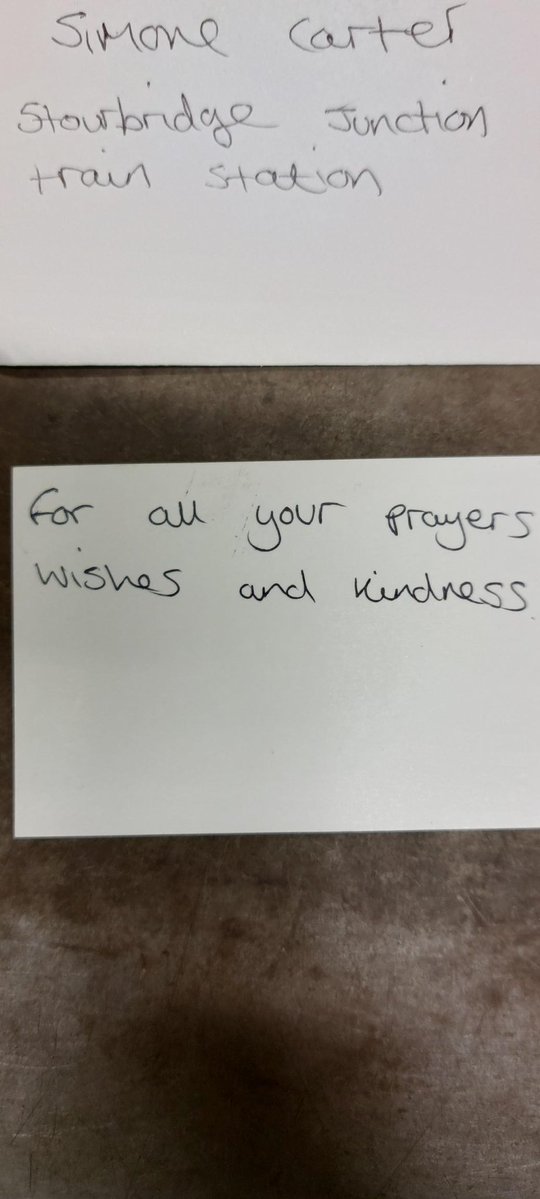 Simone Carter
Stourbridge Junction
train station
For all your prayers
wishes and kindness